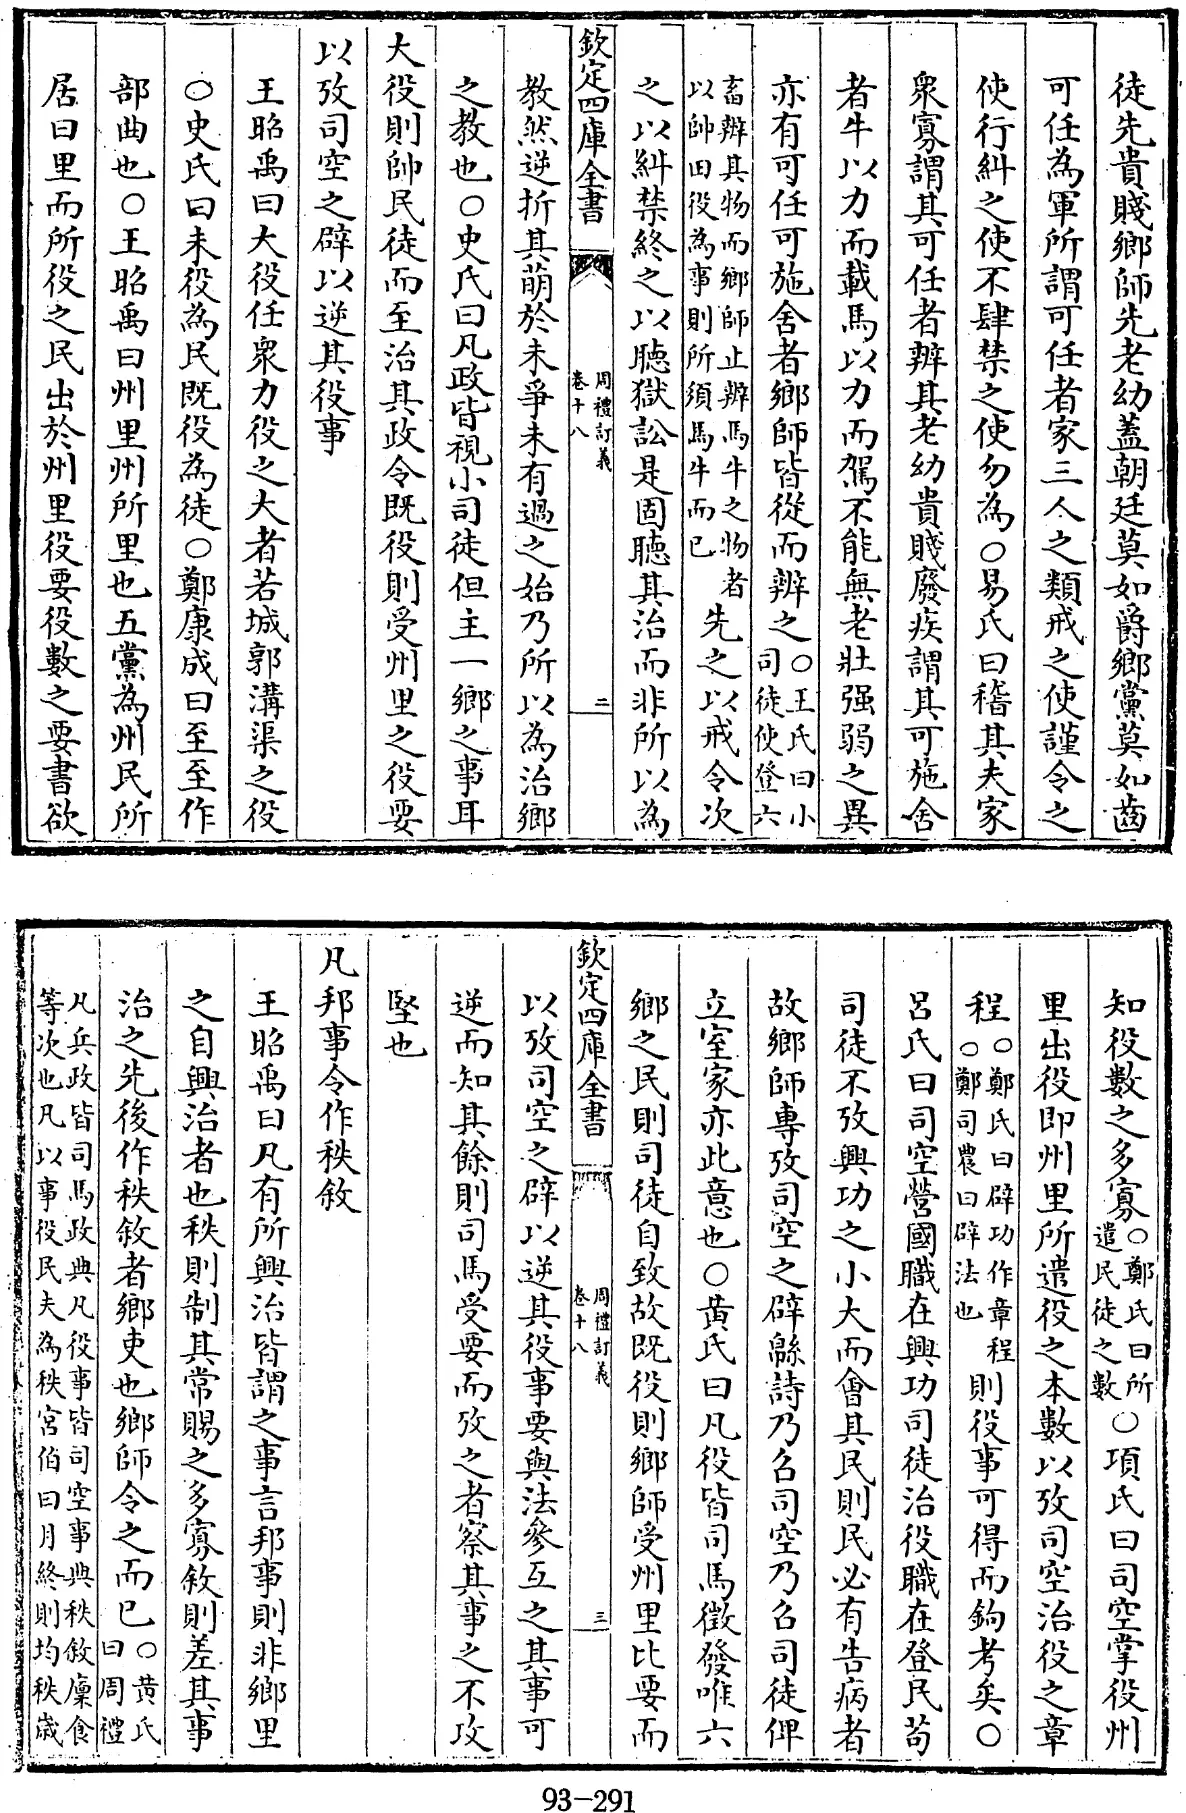 徒先貴賤鄉師先老幼蓋朝廷莫如爵鄉黨莫如齒
可任為軍所謂可任者家三人之類戒之使謹令之
使行糾之使不肆禁之使勿為○易氏曰稽其夫家
衆寡謂其可任者辨其老幼貴賤廢疾謂其可施舍
者牛以力而載馬以力而駕不能無老壯强弱之異
亦有可任可施舍者鄉師皆從而辨之○王氏曰小司徒使登六
畜辨其物而鄉師止辨馬牛之物者以帥田役為事則所須馬牛而已先之以戒令次
之以糾禁終之以聽獄訟是固聽其治而非所以為
欽定四庫全書
周禮訂義
卷十八
二
教然逆折其萌於未爭未有過之始乃所以為治鄉
之教也○史氏曰凡政皆視小司徒但主一鄉之事耳
大役則帥民徒而至治其政令既役則受州里之役要
以攷司空之辟以逆其役事
王昭禹曰大役任衆力役之大者若城郭溝渠之役
○史氏曰未役為民既役為徒○鄭康成曰至至作
部曲也○王昭禹曰州里州所里也五黨為州民所
居曰里而所役之民出於州里役要役數之要書欲
知役數之多寡○鄭氏曰所遣民徒之數○項氏曰司空掌役州
里出役即州里所遣役之本數以攷司空治役之章
程○鄭氏曰辟功作章程○鄭司農曰辟法也則役事可得而鉤考矣○
呂氏曰司空營國職在興功司徒治役職在登民苟
司徒不攷興功之小大而會其民則民必有告病者
故鄉師專攷司空之辟緜詩乃召司空乃召司徒俾
立室家亦此意也○黃氏曰凡役皆司馬徵發唯六
鄉之民則司徒自致故既役則鄉師受州里比要而
欽定四庫全書
周禮訂義
卷十八
三
以攷司空之辟以逆其役事要與法參互之其事可
逆而知其餘則司馬受要而攷之者察其事之不攻
堅也
凡邦事令作秩敘
王昭禹曰凡有所興治皆謂之事言邦事則非鄉里
之自興治者也秩則制其常賜之多寡敘則差其事
治之先後作秩敘者鄉吏也鄉師令之而已○黃氏曰周禮
凡兵政皆司馬政典凡役事皆司空事典秩敘廩食等次也凡以事役民夫為秩宮伯曰月終則均秩歲
93-291